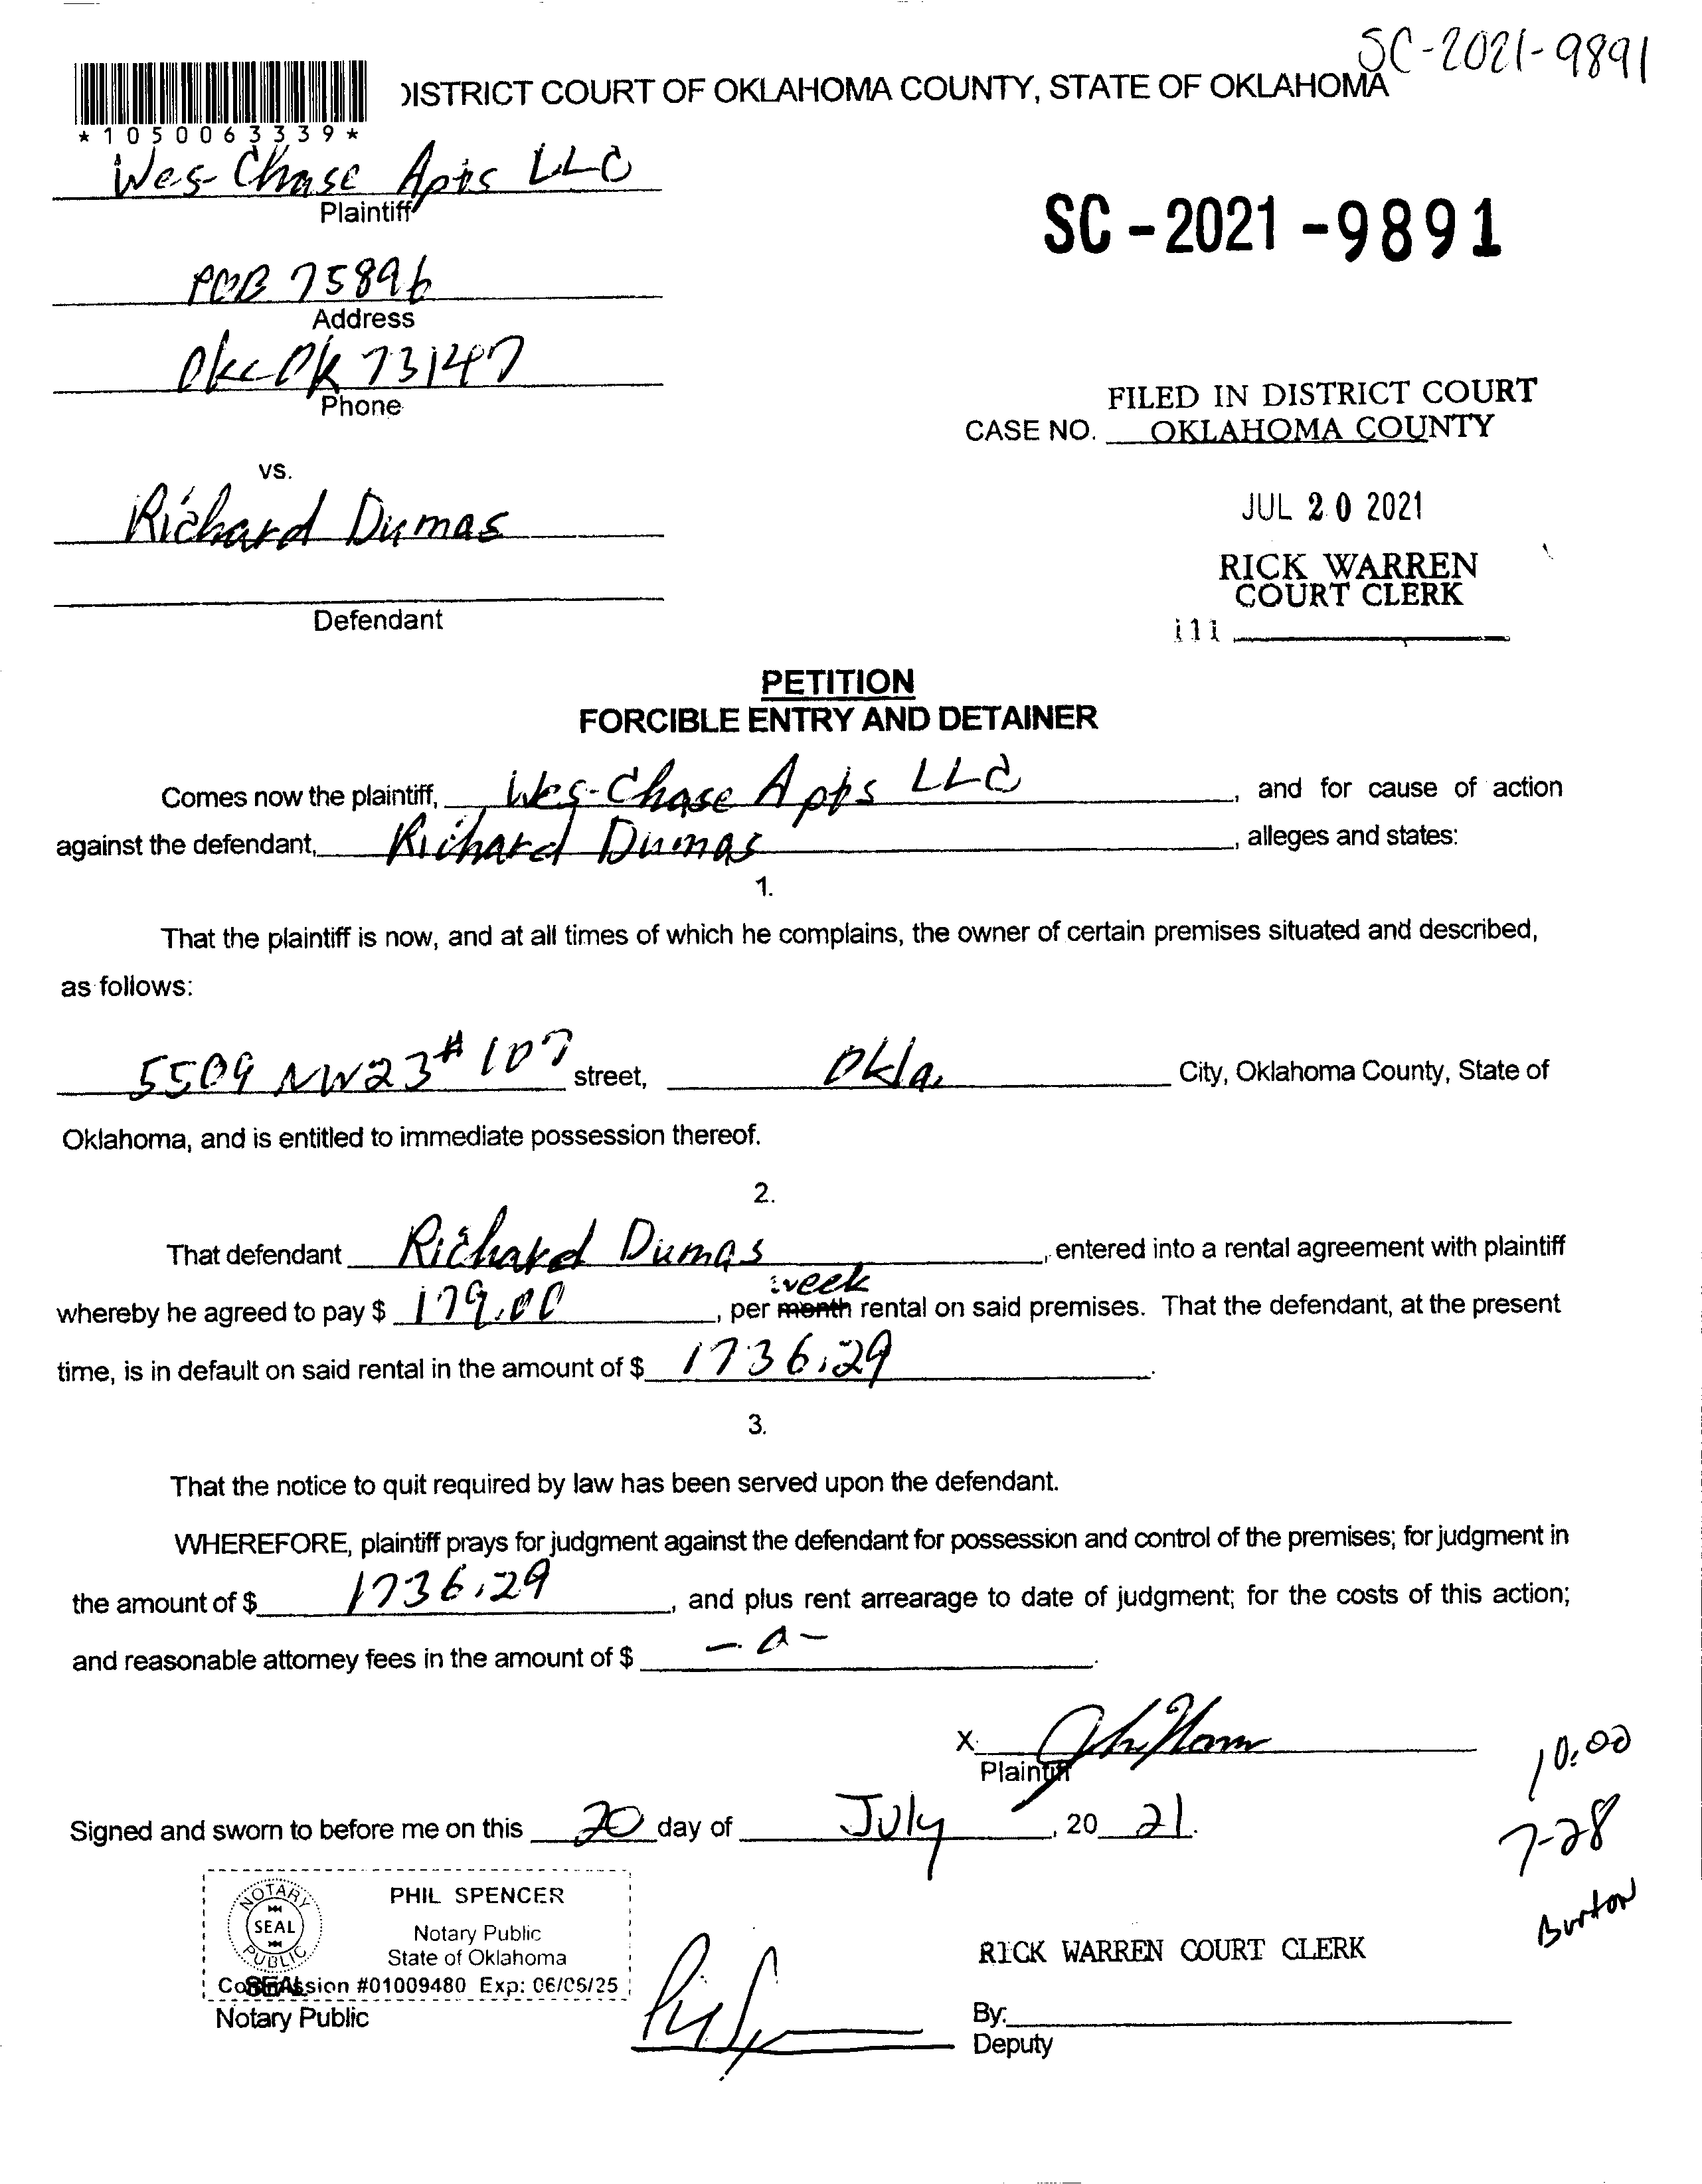 SC-2021-9891
DISTRICT COURT OF OKLAHOMA COUNTY, STATE OF OKLAHOMA
*1050063339*
Wes-Chase Apts LLC
Plaintiff
SC-2021-9891
POB 75896
Address
Okc Ok 73147
Phone
FILED IN DISTRICT COURT
CASE NO. OKLAHOMA COUNTY
vs.
JUL 20 2021
Richard Dumas
RICK WARREN
COURT CLERK
Defendant
111
PETITION
FORCIBLE ENTRY AND DETAINER
Comes now the plaintiff, Wes-Chase Apts LLC, and for cause of action
against the defendant, Richard Dumas, alleges and states:
1.
That the plaintiff is now, and at all times of which he complains, the owner of certain premises situated and described,
as follows:
5509 NW23 #107 street, Okla. City, Oklahoma County, State of
Oklahoma, and is entitled to immediate possession thereof.
2.
That defendant Richard Dumas, entered into a rental agreement with plaintiff
week
whereby he agreed to pay $ 179.00, per month rental on said premises. That the defendant, at the present
time, is in default on said rental in the amount of $ 1736.29.
3.
That the notice to quit required by law has been served upon the defendant.
WHEREFORE, plaintiff prays for judgment against the defendant for possession and control of the premises; for judgment in
the amount of $ 1736.29, and plus rent arrearage to date of judgment; for the costs of this action;
and reasonable attorney fees in the amount of $ -0-.
X
Plaintiff
10:00
Signed and sworn to before me on this 20 day of July, 20 21.
7-28
Burton
NOTARY PUBLIC SEAL
PHIL SPENCER
Notary Public
State of Oklahoma
Commission #01009480 Exp: 06/05/25
SEAL
Notary Public
RICK WARREN COURT CLERK
By:
Deputy